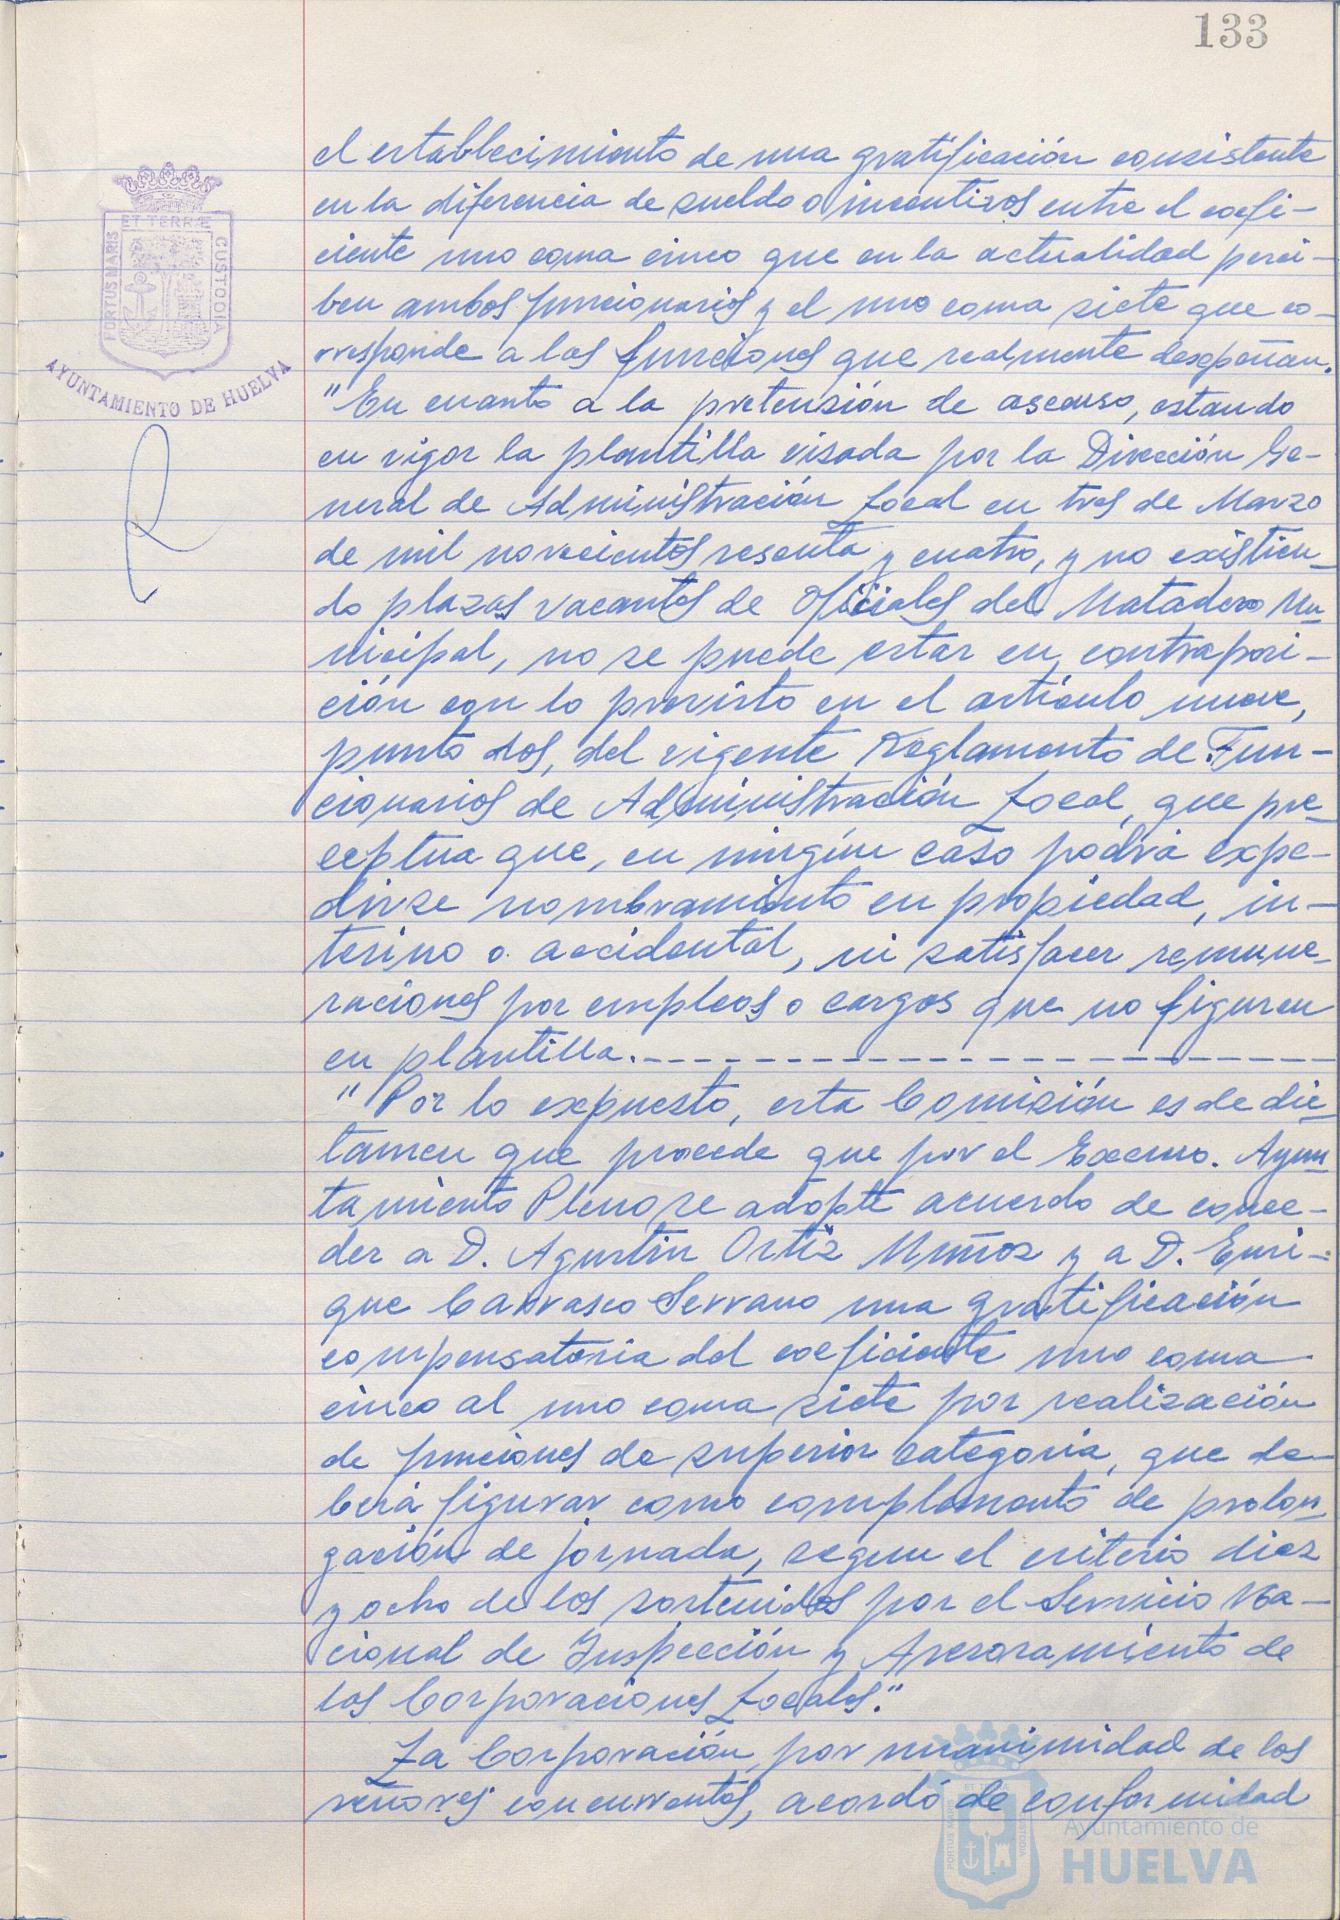 133
el establecimiento de una gratificación consistente
en la diferencia de sueldo o incentivos entre el coefi-
ciente uno coma cinco que en la actualidad perci-
ben ambos funcionarios y el uno coma siete que co-
rresponde a las funciones que realmente desepeñan.
"En cuanto a la pretensión de ascenso, estando
en vigor la plantilla visada por la Dirección Ge-
neral de Administración Local en tres de Marzo
de mil novecientos sesenta y cuatro, y no existien-
do plazas vacantes de Oficiales del Matadero Mu-
nicipal, no se puede estar en contraposi-
ción con lo previsto en el artículo nueve,
punto dos, del vigente Reglamento de Fun-
cionarios de Administración Local, que pre-
ceptua que, en ningún caso podrá expe-
dirse nombramiento en propiedad, in-
terino o accidental, ni satisfacer remune-
raciones por empleos o cargos que no figuren
en plantilla.-----------------------
"Por lo expuesto, esta Comisión es de dic-
tamen que procede que por el Excmo. Ayun-
tamiento Pleno se adopte acuerdo de conce-
der a D. Agustín Ortiz Muñoz y a D. Enri-
que Carrasco Serrano una gratificación
compensatoria del coeficiente uno coma
cinco al uno coma siete por realización
de funciones de superior categoría, que de-
berá figurar como complemento de prolon-
gación de jornada, segun el criterio diez
y ocho de los sostenidos por el Servicio Na-
cional de Inspección y Asesoramiento de
las Corporaciones Locales."
La Corporación, por unanimidad de los
señores concurrentes, acordó de conformidad
PORTUS MARIS ET TERRÆ CUSTODIA
AYUNTAMIENTO DE HUELVA
Ayuntamiento de
HUELVA